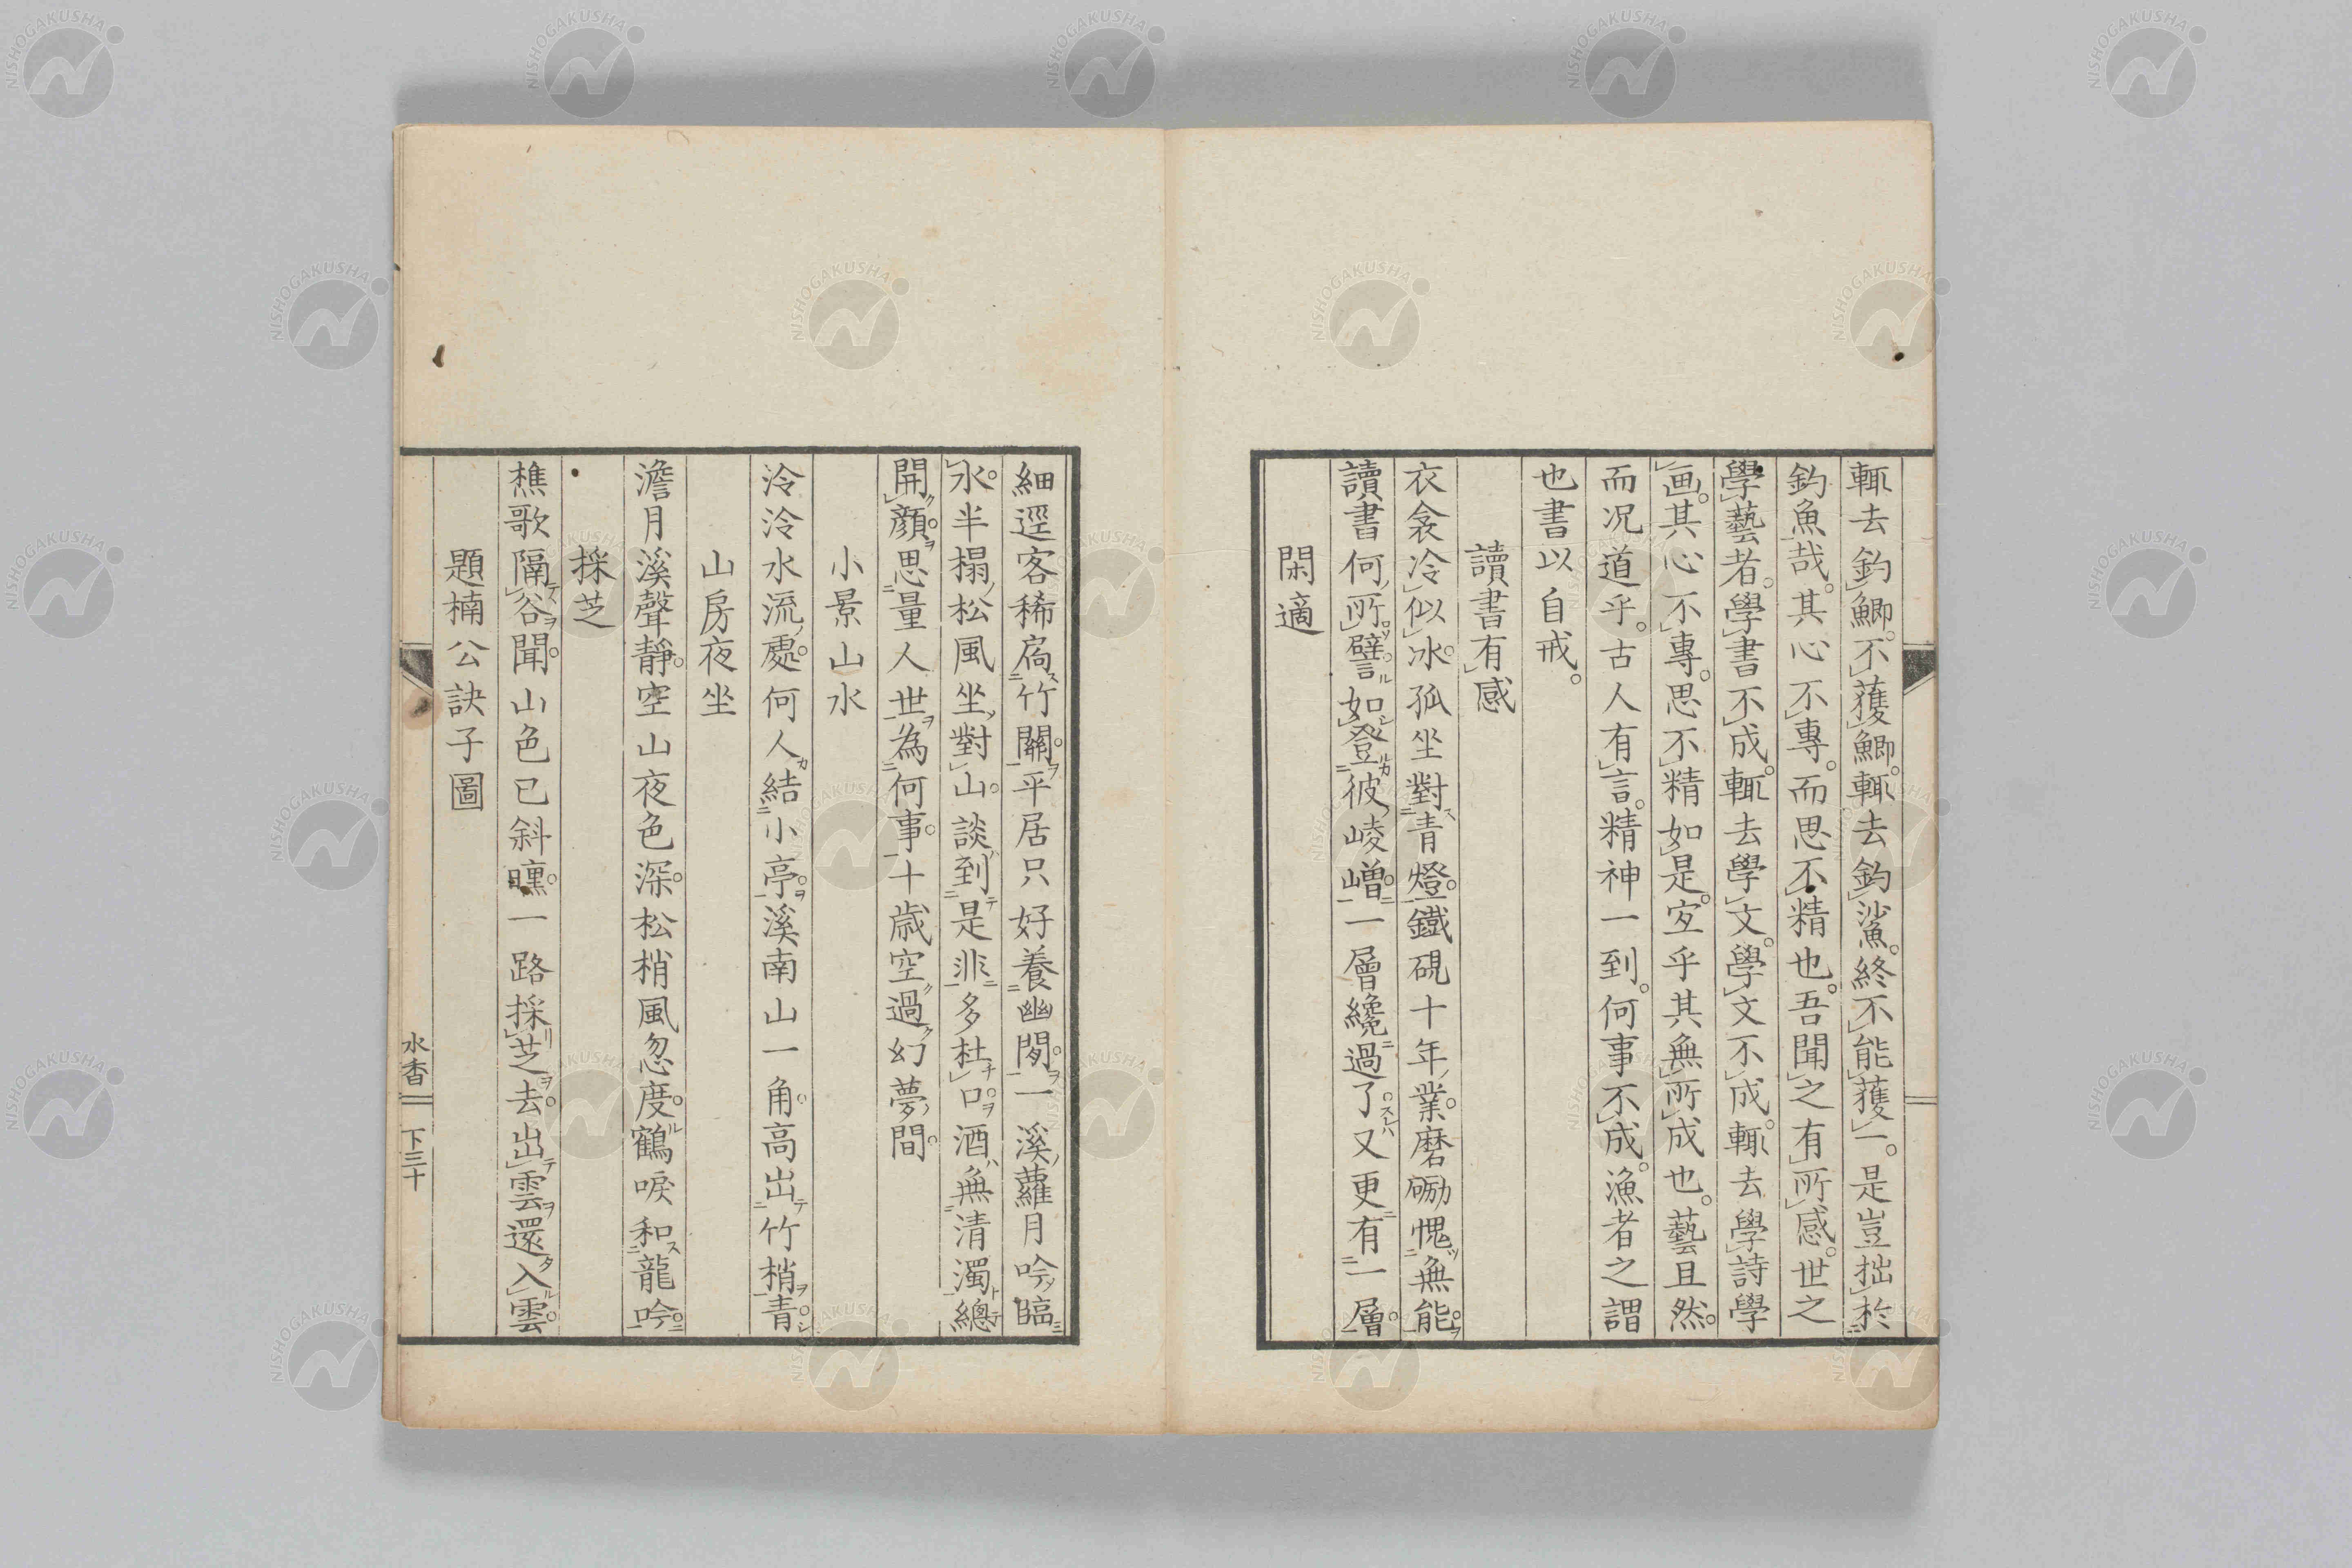 輙去釣鯽。不獲鯽。輙去釣鯊。終不能獲一。是豈拙於
釣魚哉。其心不專。而思不精也。吾聞之有所感。世之
學藝者。學書不成。輙去學文。學文不成。輙去學詩學
画。其心不專。思不精如是。宜乎其無所成也。藝且然。
而况道乎。古人有言。精神一到。何事不成。漁者之謂
也書以自戒。
讀書有感
衣衾冷似氷孤坐對青燈鐵硯十年業磨礪愧無能
讀書何所譬如登彼崚嶒一層纔過了又更有一層
閑適
細逕客稀扃竹關平居只好養幽閒一溪蘿月吟臨
水半榻松風坐對山談到是非多杜口酒無清濁總
開顔思量人世為何事十歳空過幻夢間
小景山水
泠泠水流處何人結小亭溪南山一角高出竹梢青
山房夜坐
澹月溪聲靜空山夜色深松梢風忽度鶴唳和龍吟
採芝
樵歌隔谷聞山色已斜曛一路採芝去出雲還入雲
題楠公訣子圖
水香 下三十
NISHOGAKUSHA